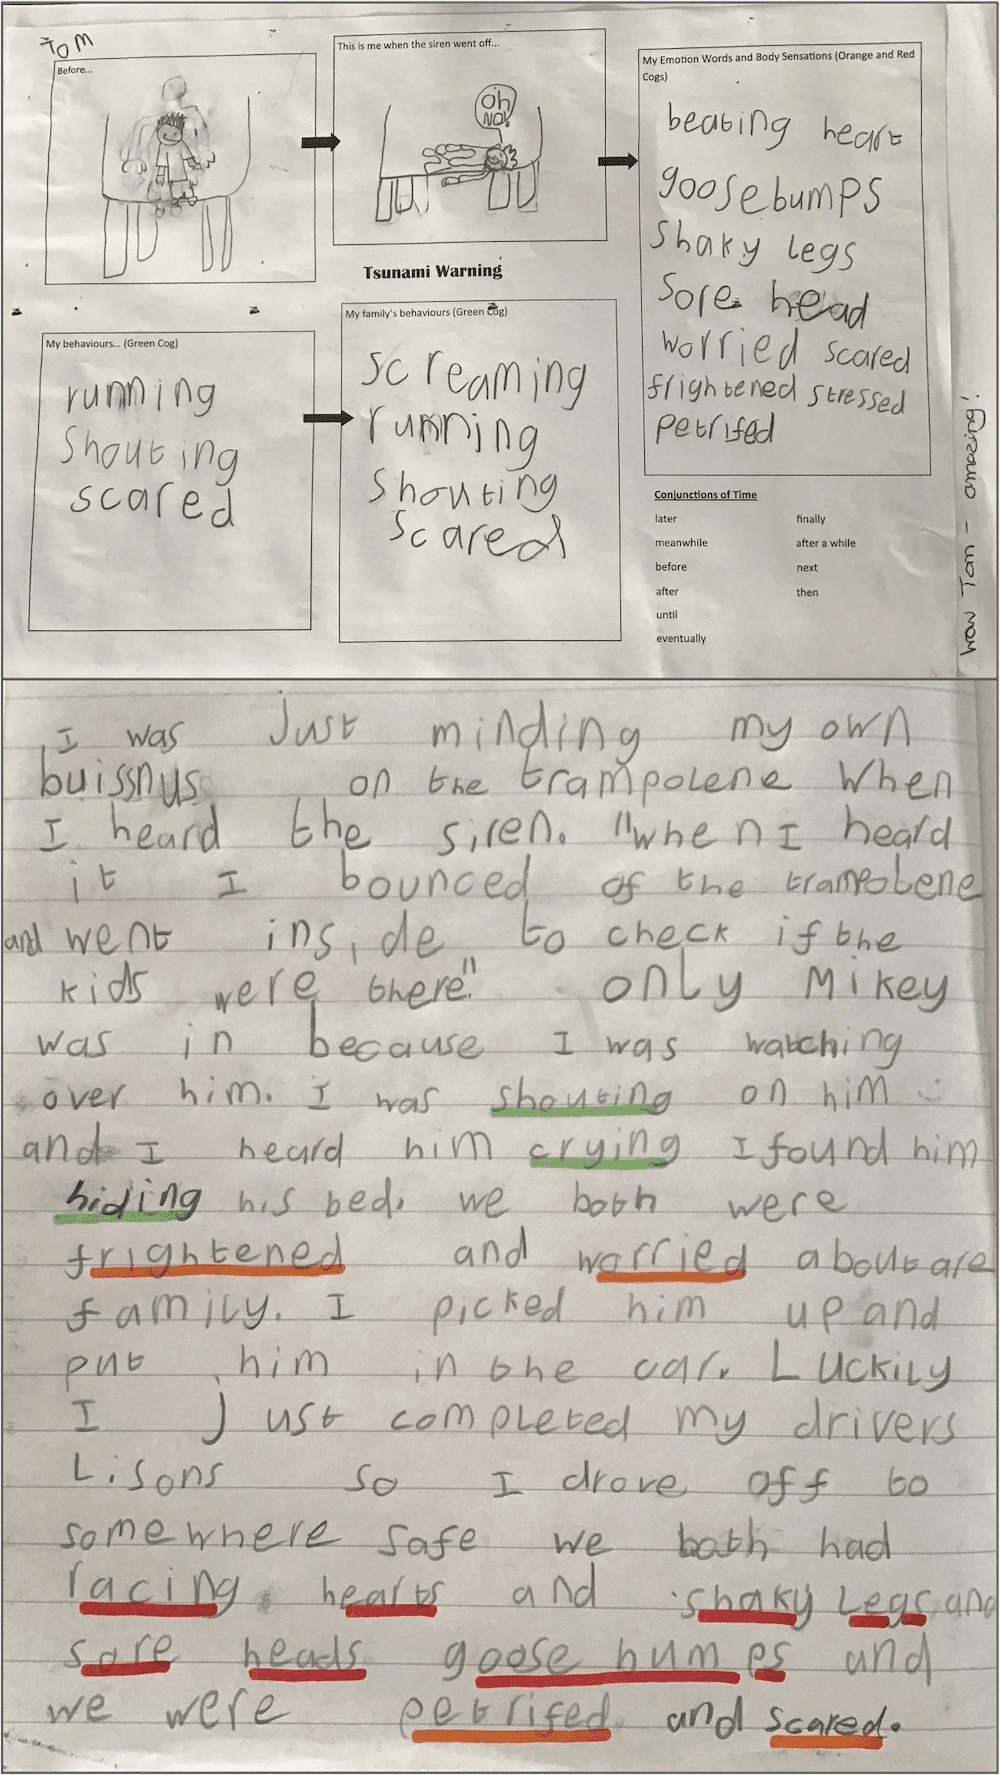 TOM
Before...
This is me when the siren went off...
oh
NO!
My Emotion Words and Body Sensations (Orange and Red
Cogs)
beating heart
goosebumps
shaky legs
sore head
worried scared
frightened stressed
petrifed
Tsunami Warning
My behaviours... (Green Cog)
running
shouting
scared
My family's behaviours (Green Cog)
screaming
running
shouting
scared
Conjunctions of Time
later
meanwhile
before
after
until
eventually
finally
after a while
next
then
Wow Tom - amazing!
I was just minding my own
buissnus on the trampolene when
I heard the siren. "when I heard
it I bounced of the trampolene
and went inside to check if the
kids were there." only Mikey
was in because I was watching
over him. I was shouting on him
and I heard him crying I found him
hiding his bed. we both were
frightened and worried about are
family. I picked him up and
put him in the car. Luckily
I just completed my drivers
Lisons so I drove off to
somewhere safe we both had
racing hearts and shaky legs and
sore heads goose bumps and
we were petrifed and scared.